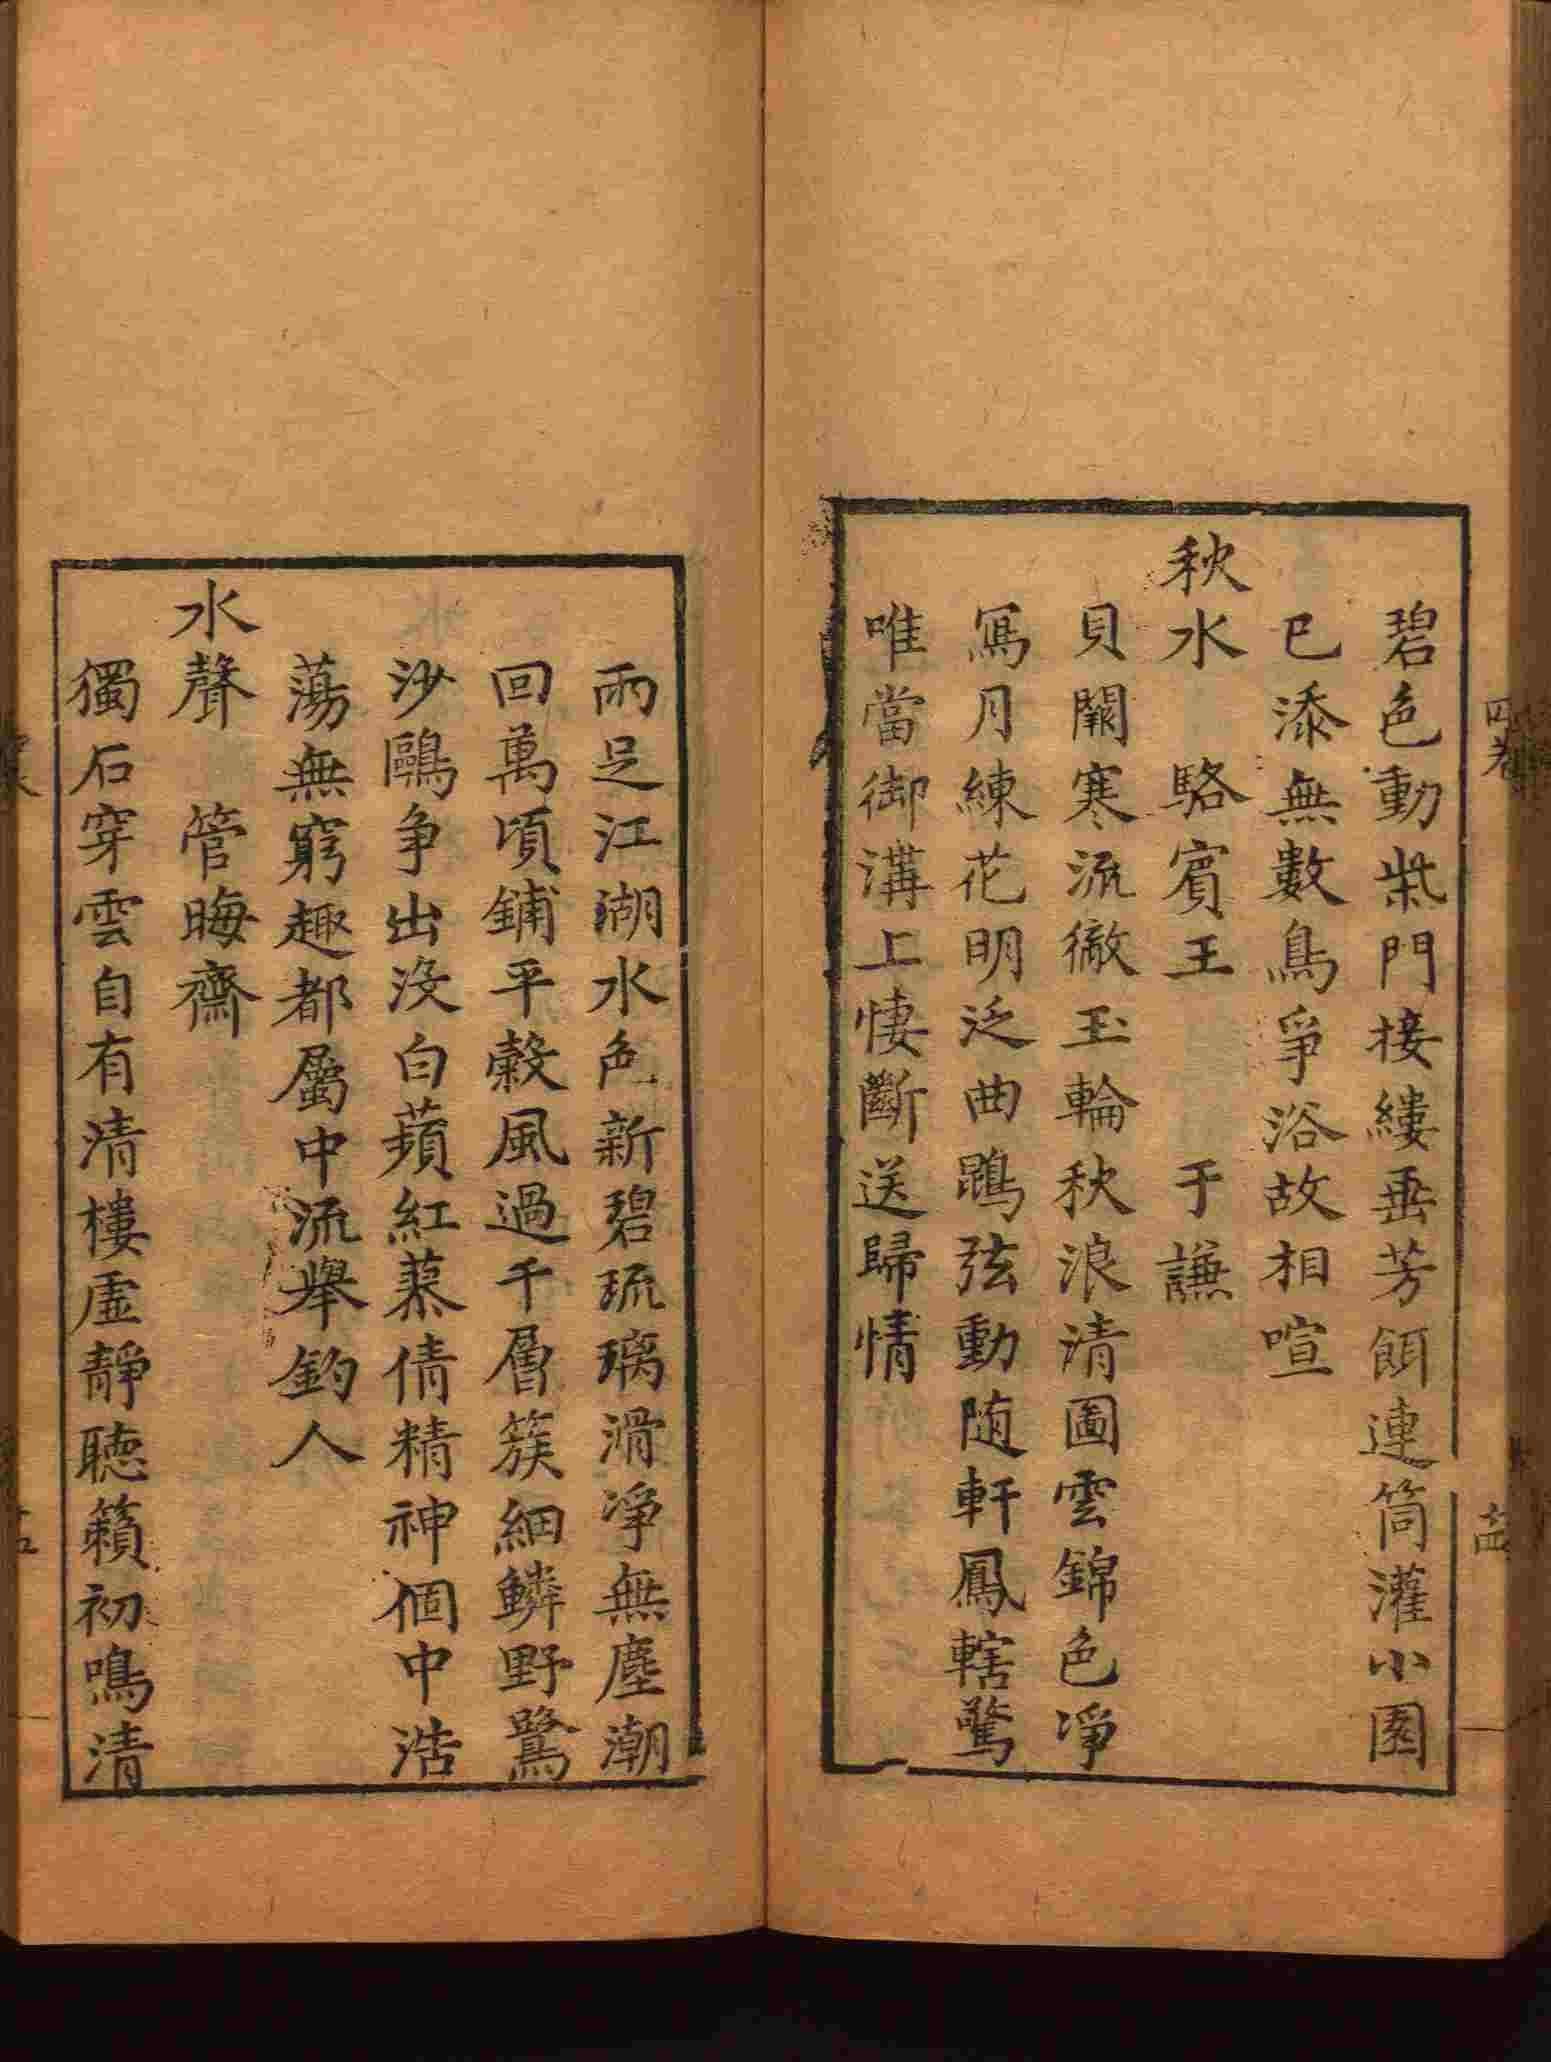 碧色動柴門接縷垂芳餌連筒灌小園
已添無數鳥爭浴故相喧
秋水　駱賓王　于謙
貝闕寒流徹玉輪秋浪清圖雲錦色凈
寫月練花明泛曲鵾弦動随軒鳳轄驚
唯當御溝上悽斷送歸情
雨足江湖水色新碧琉璃滑凈無塵潮
回萬頃鋪平縠風過千層簇細鱗野鷺
沙鷗争出没白蘋紅蓼倩精神個中浩
蕩無窮趣都屬中流舉釣人
水聲　管晦齋
獨石穿雲自有清樓虛靜聽籟初鳴清